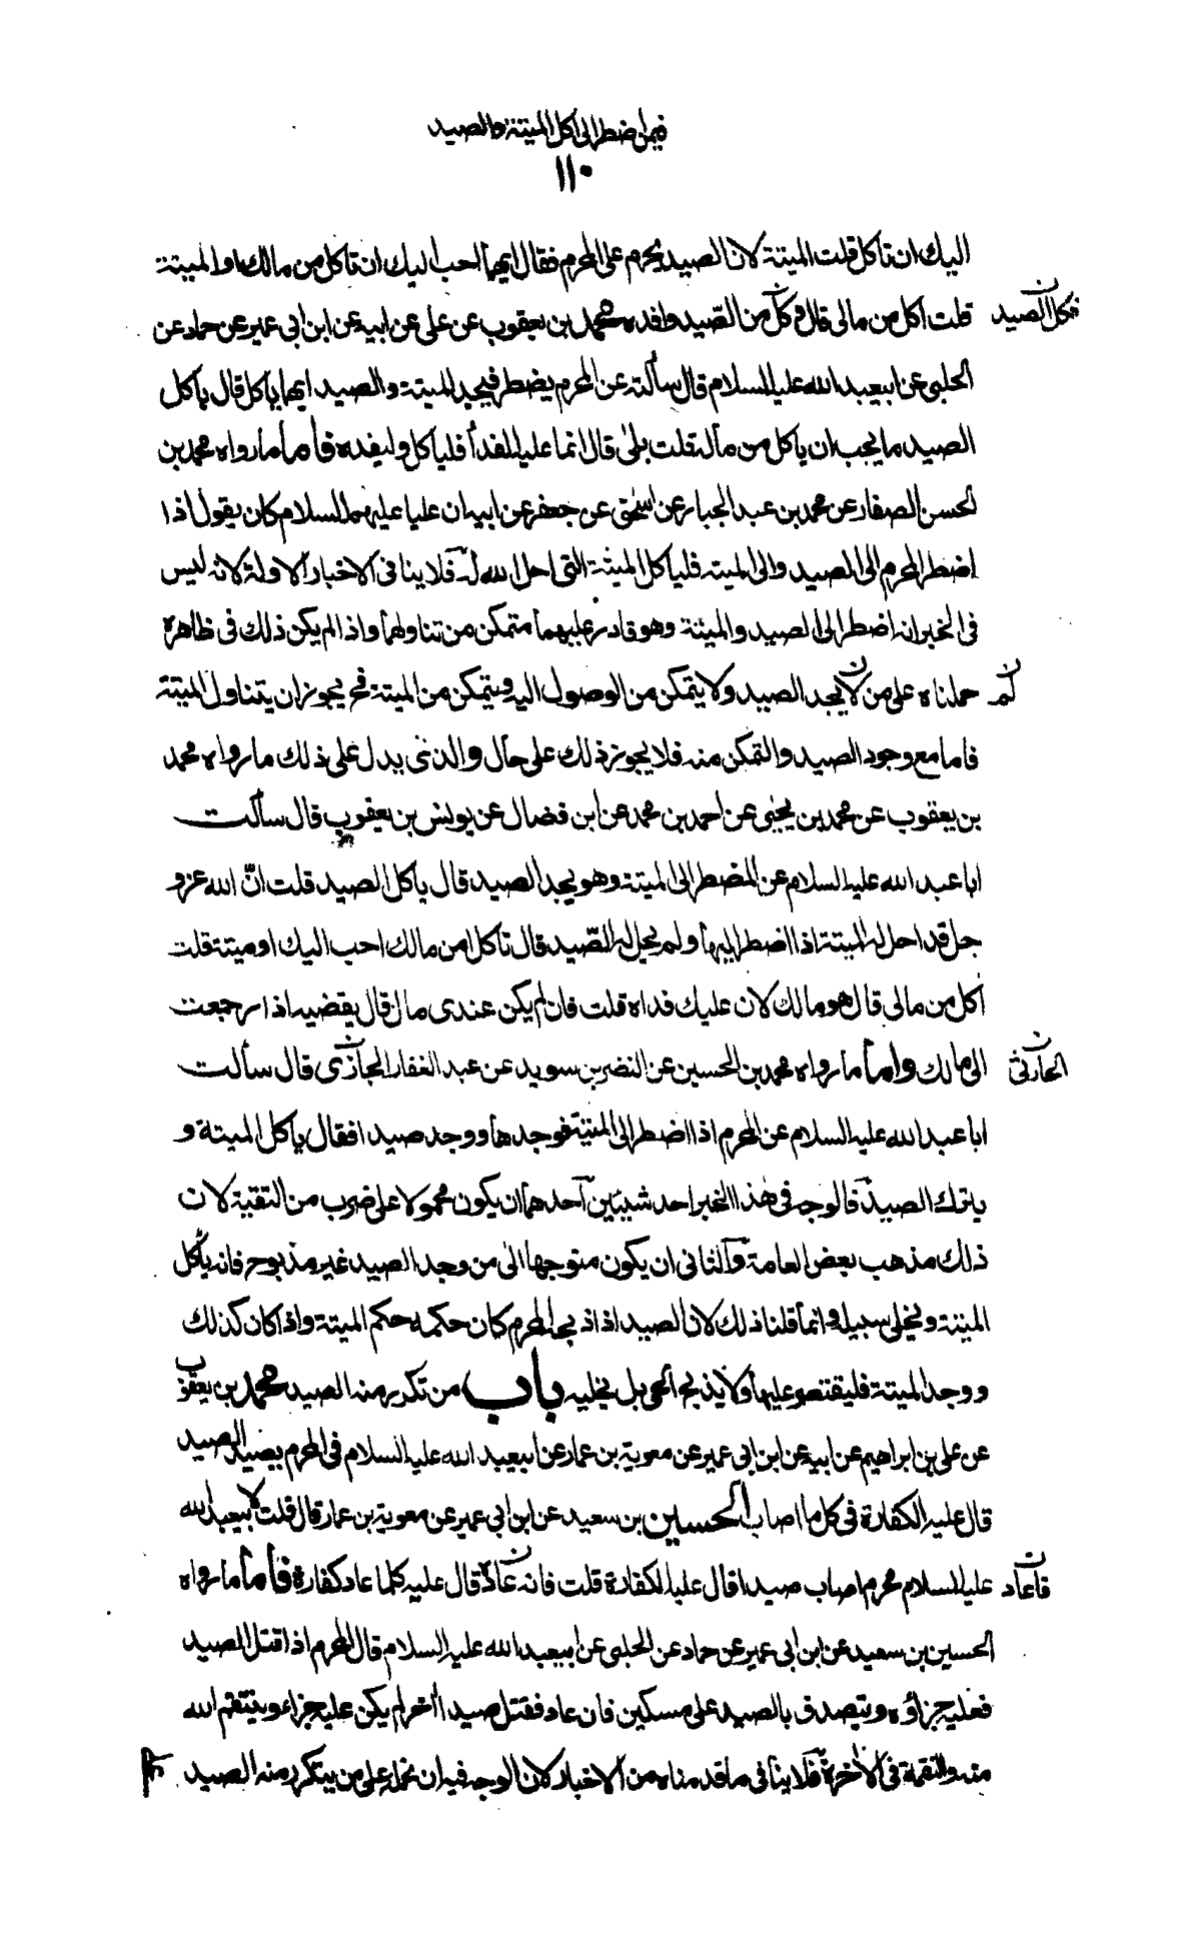 فيمن اضطر الى اكل الميتة والصيد
١١٠
اليك ان تاكل قلت الميتة لان الصيد يحرم على المحرم فقال ايهما احب اليك ان تاكل من مالك او الميتة
قلت اكل من مالي قال فكل من الصّيد وافده محمد بن يعقوب عن علي عن ابيه عن ابن ابي عمير عن حماد عن
فكل الصيد ن
الحلبي عن ابيعبد الله عليه السلام قال سألته عن المحرم يضطر فيجد الميتة والصيد ايهما ياكل قال ياكل
الصيد ما يجب ان ياكل من ماله قلت بلى قال انما عليه الفدأ فلياكل وليفده فأما ما رواه محمد بن
الحسن الصفار عن محمد بن عبد الجبار عن اسحق عن جعفر عن ابيه ان عليا عليهما السلام كان يقول اذا
اضطر المحرم الى الصيد والى الميته فلياكل الميتة التي احل الله له فلا ينافى الاخبار الاولة لانه ليس
في الخبر انه اضطر الى الصيد والميتة وهو قادر عليهما متمكن من تناولهما واذا لم يكن ذلك في ظاهره
حملناه على من لا يجد الصيد ولا يتمكن من الوصول اليه ويتمكن من الميتة فح يجوز ان يتناول الميتة
لم ن
فاما مع وجود الصيد والتمكن منه فلا يجوز ذلك على حال والذى يدل على ذلك ما رواه محمد
بن يعقوب عن محمد بن يحيى عن احمد بن محمد عن ابن فضال عن يونس بن يعقوب قال سألت
ابا عبد الله عليه السلام عن المضطر الى الميتة وهو يجد الصيد قال ياكل الصيد قلت انّ الله عز و
جل قد احل له الميتة اذا اضطر اليها ولم يحل له الصّيد قال تاكل من مالك احب اليك او ميتة قلت
اكل من مالي قال هو مالك لان عليك فداه قلت فان لم يكن عندى مال قال يقضيه اذا رجعت
الى مالك وأما ما رواه محمد بن الحسين عن النضر بن سويد عن عبد الغفار الجازى قال سألت
الحارثي ن
ابا عبد الله عليه السلام عن المحرم اذا اضطر الى الميتة فوجدها ووجد صيدا فقال ياكل الميتة و
يترك الصيد فالوجه في هذا الخبر احد شيئين احدهما ان يكون محمولا على ضرب من التقية لان
ذلك مذهب بعض العامة والثاني ان يكون متوجها الى من وجد الصيد غير مذبوح فانه ياكل
الميتة ويخلى سبيله وانما قلنا ذلك لان الصيد اذا ذبحه المحرم كان حكمه حكم الميتة واذا كان كذلك
ووجد الميتة فليقتصر عليها ولا يذبح الحي بل يخليه باب من تكرر منه الصيد محمد بن يعقوب
عن علي بن ابراهيم عن ابيه عن ابن ابي عمير عن معوية بن عمار عن ابيعبد الله عليه السلام في المحرم يصيد الصيد
قال عليه الكفارة في كل ما اصاب الحسين بن سعيد عن ابن ابي عمير عن معوية بن عمار قال قلت لابيعبد الله
عليه السلام محرم اصاب صيدا قال عليه الكفارة قلت فانه عاد قال عليه كلما عاد كفارة فأما ما رواه
فان عاد ن
الحسين بن سعيد عن ابن ابي عمير عن حماد عن الحلبي عن ابيعبد الله عليه السلام قال المحرم اذا قتل الصيد
فعليه جزاؤه ويتصدق بالصيد على مسكين فان عاد فقتل صيدا اخر لم يكن عليه جزاء وينتقم الله
منه والنقمة في الاخرة فلا ينافى ما قدمناه من الاخبار لان الوجه فيه ان نحمله على من يتكرر منه الصيد